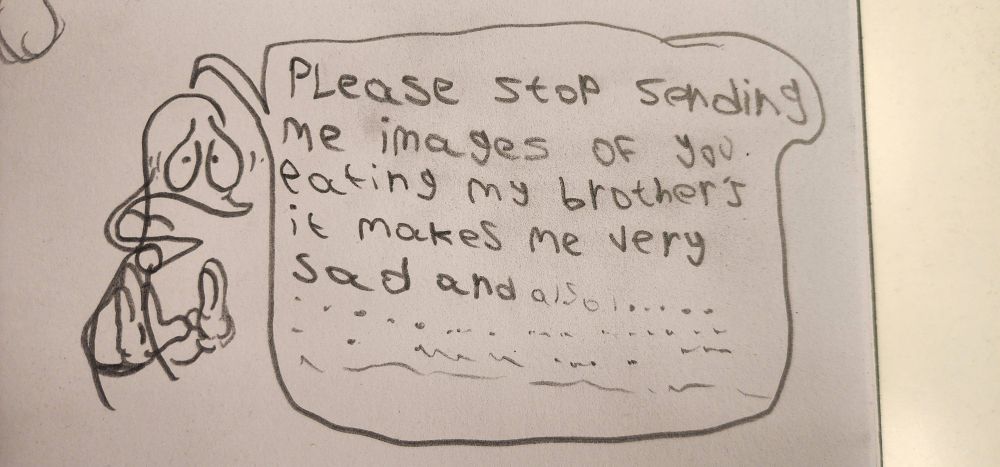 PLease stop sending
me images of you.
eating my brother's
it makes me very
sad and also I......